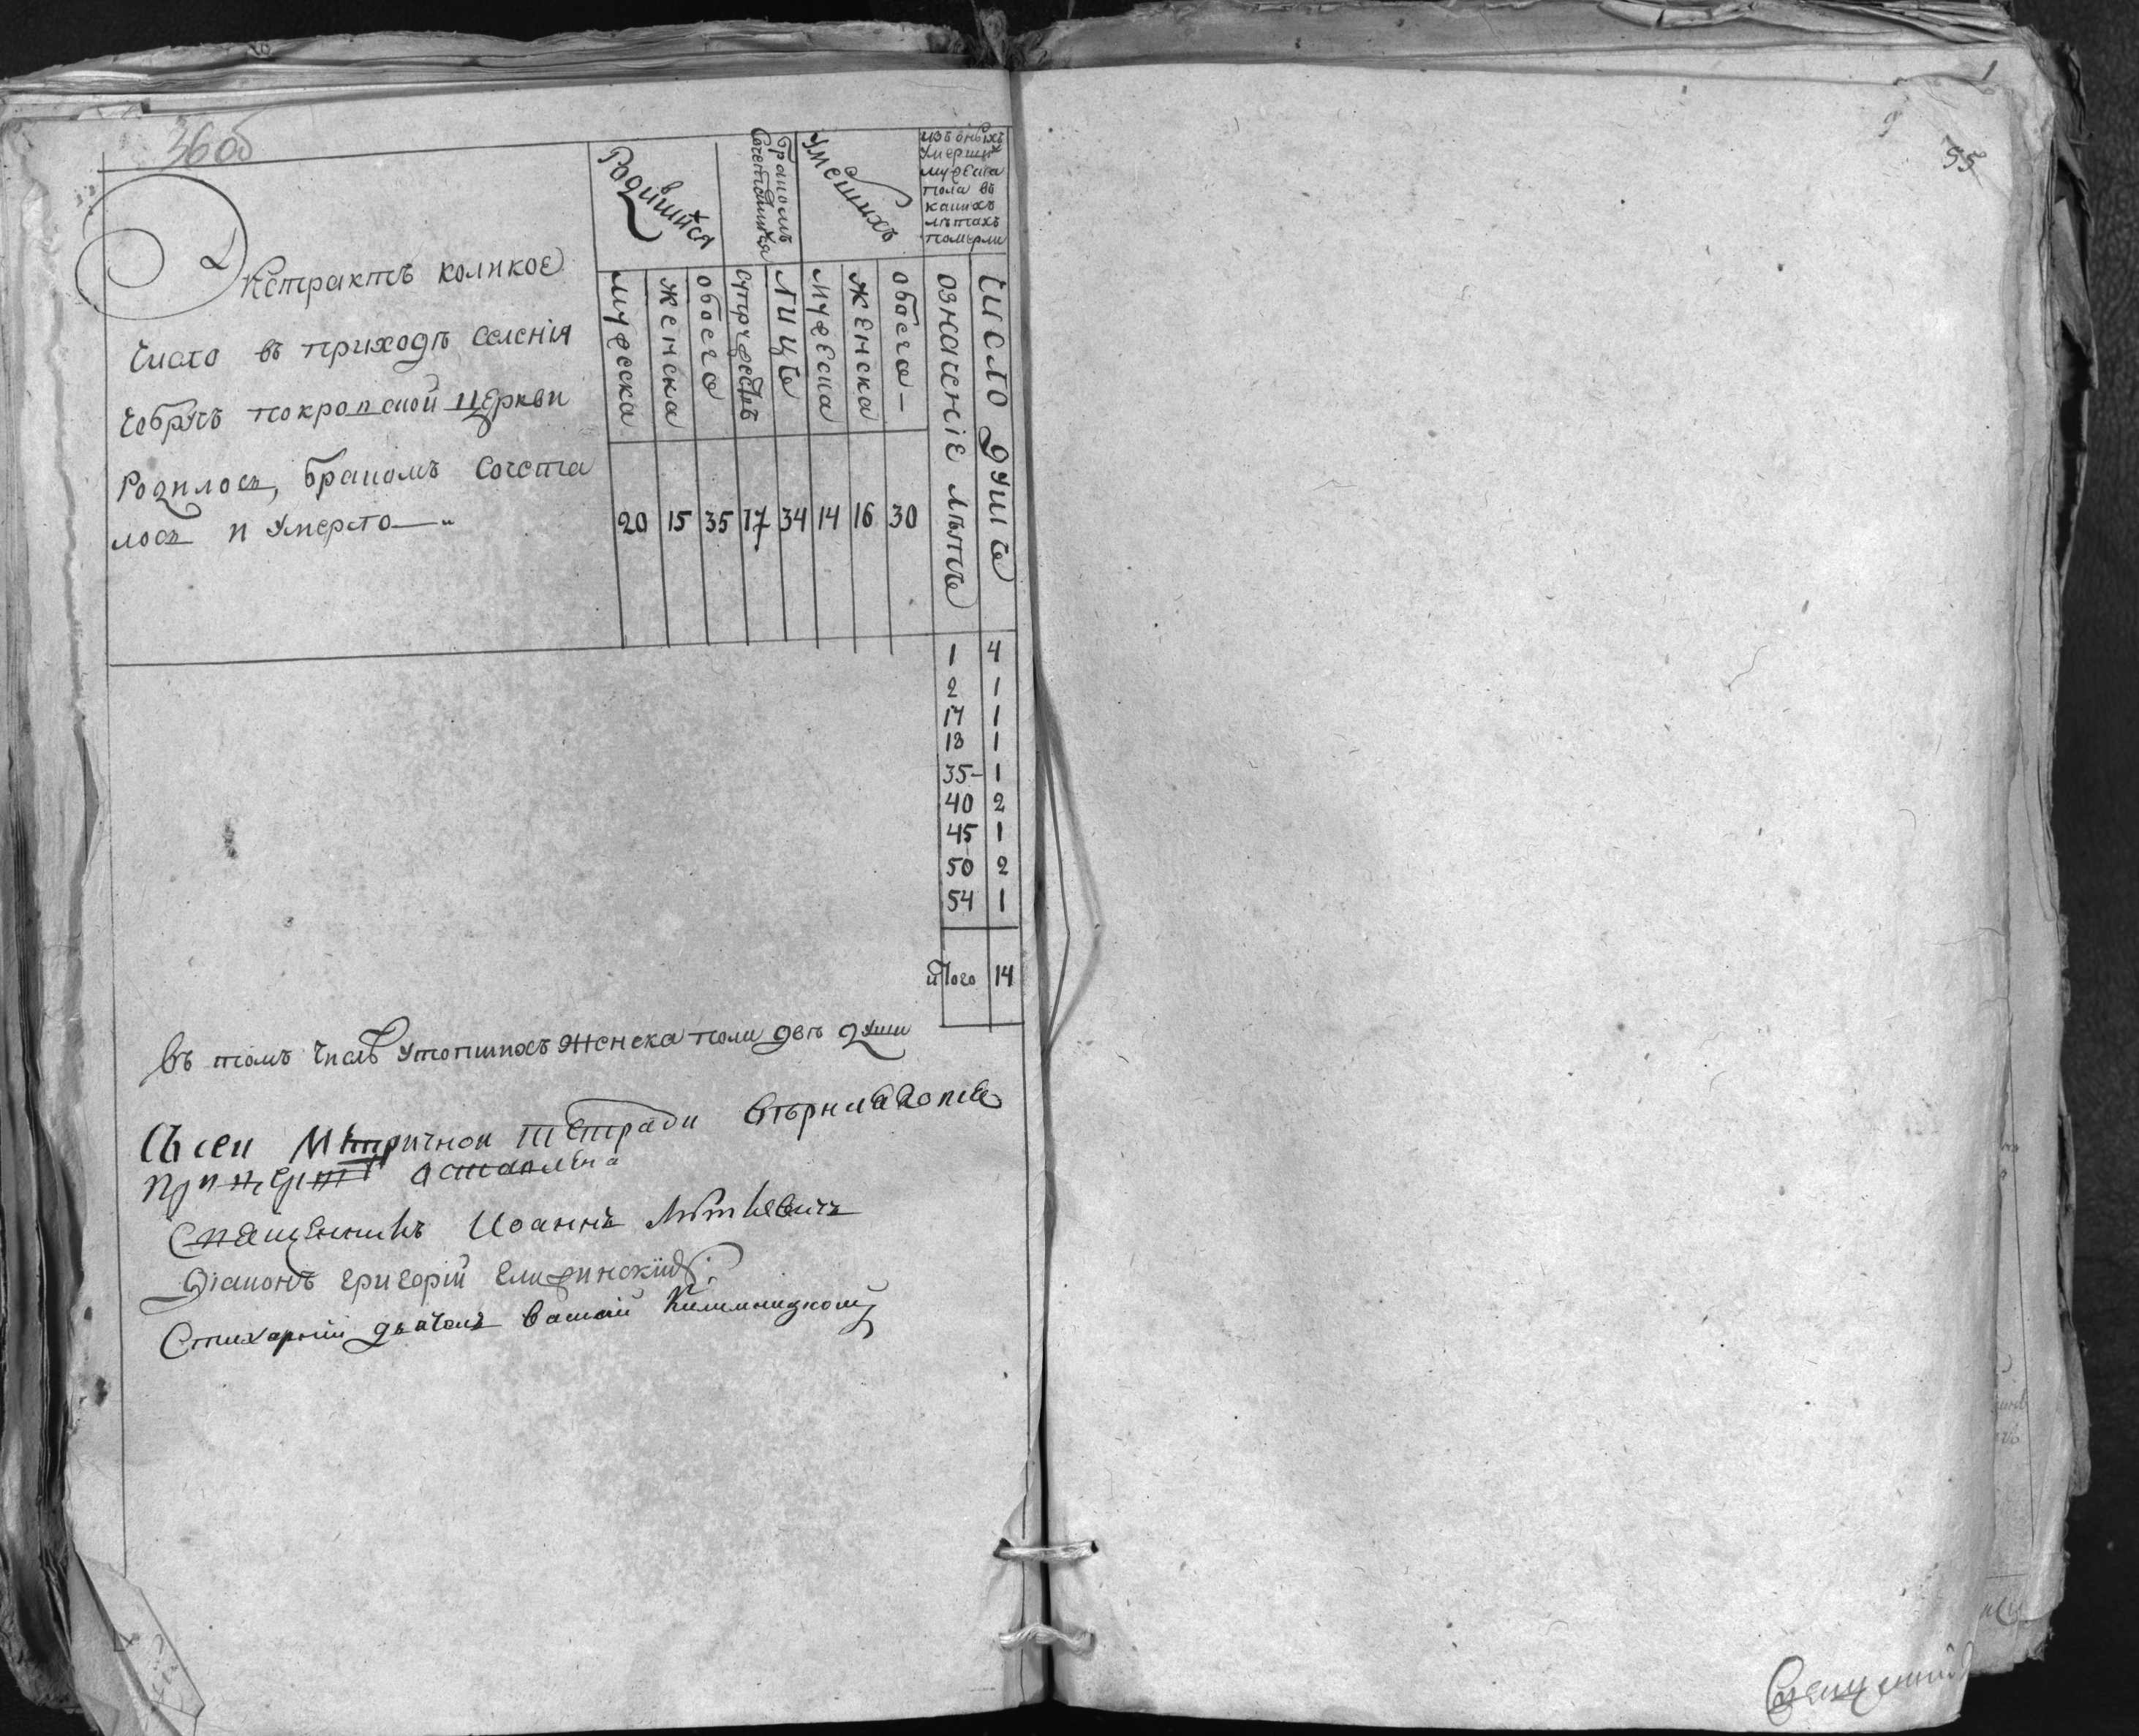 36об
Екстрактъ коликое
число въ приходѣ селенія
Чобручъ покровской церкви
Родилось, бракомъ сочета
лось и умерло
Родившихся
бракомъ сочетавшихся
Умершихъ
изъ оныхъ
умерших
мужеска
пола въ
какихъ
лѣтахъ
померли
мужеска
женска
обоего
супружествъ
лицъ
мужеска
женска
обоего
означеніе лѣтъ
число душъ
20 15 35 17 34 14 16 30
1 4
2 1
14 1
18 1
35 1
40 2
45 1
50 2
54 1
итого 14
Въ томъ числѣ утопшихъ женска пола двѣ души
Съ сеи Метричнои тетради вѣрная копія
при церквѣ оставлена
Священникъ Иоаннъ
Діаконъ Григорій
Стихарній дьячокъ Василій
55
Священникъ